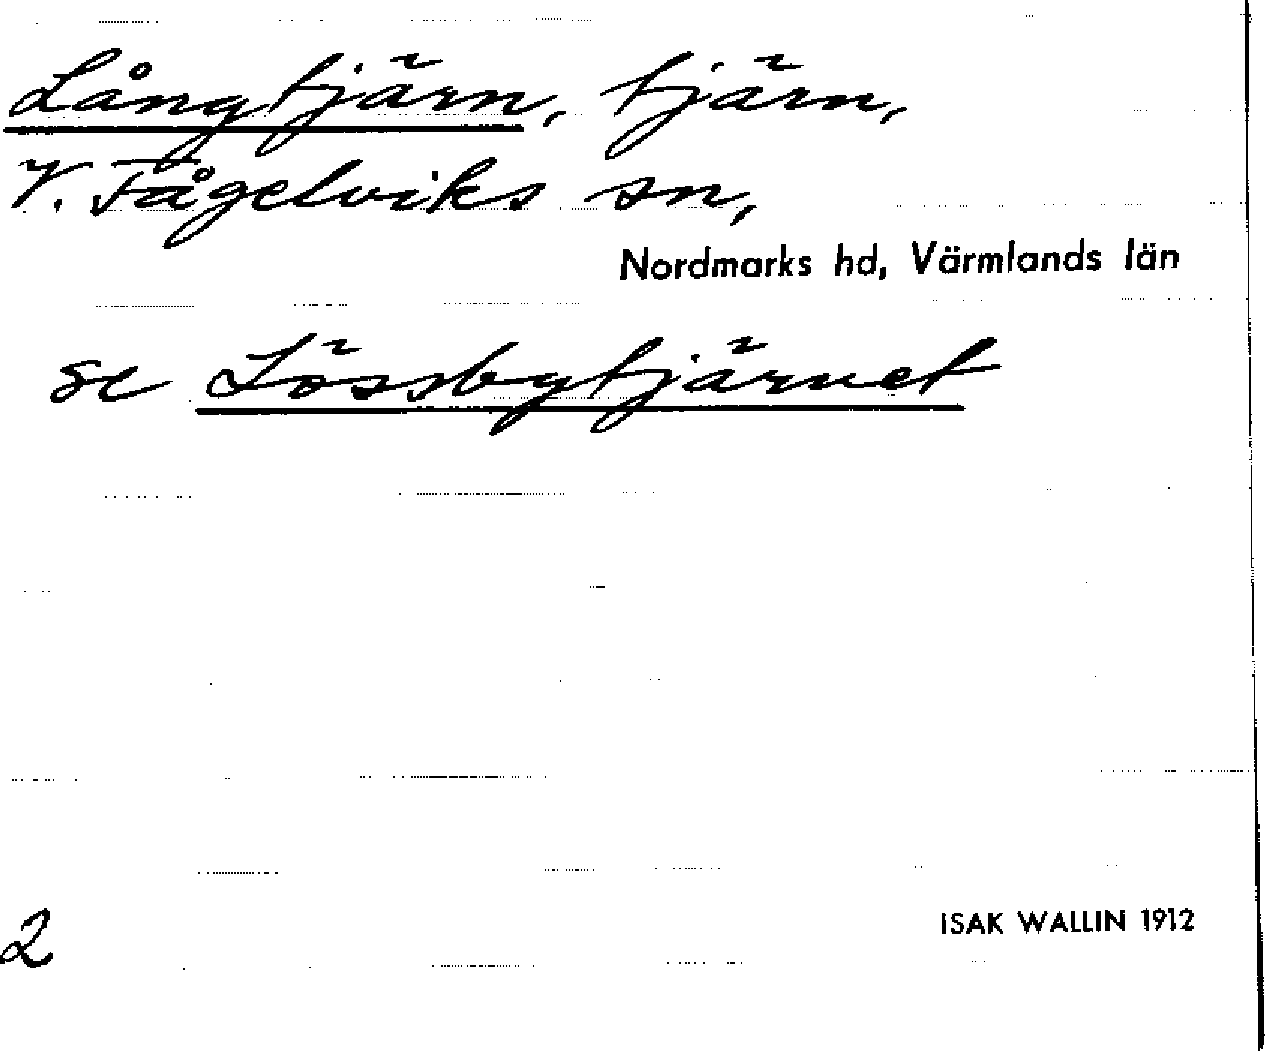 Långtjärn, tjärn,
V. Fågelviks sn,
Nordmarks hd, Värmlands län
se Lössbytjärnet
2
ISAK WALLIN 1912